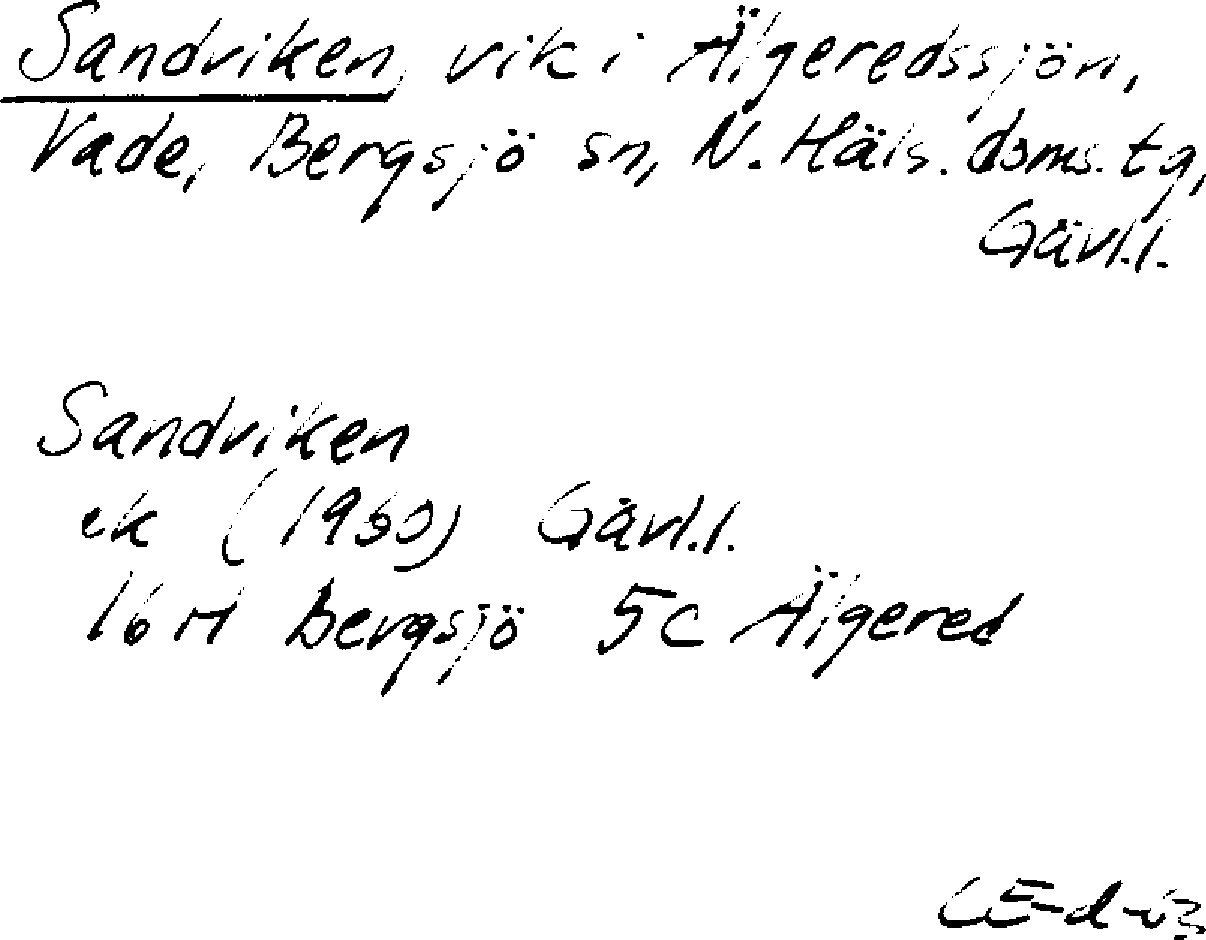 Sandviken, vik i Älgeredssjön,
Vade, Bergsjö sn, N. Häls. doms.tg,
Gävl.l.
Sandviken
ek (1960) Gävl.l.
16H Bergsjö 5c Älgered